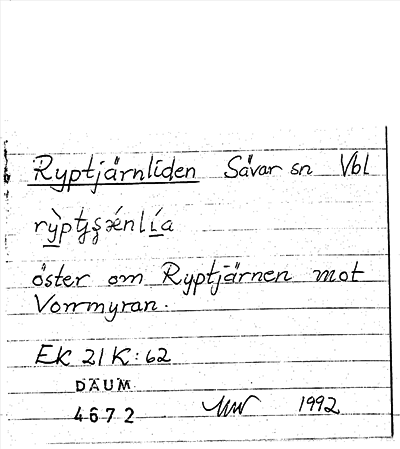 Ryptjärnliden Sävar sn Vbl
öster om Ryptjärnen mot
Vorrmyran.
EK 21 K: 62
DAUM
4672 1992